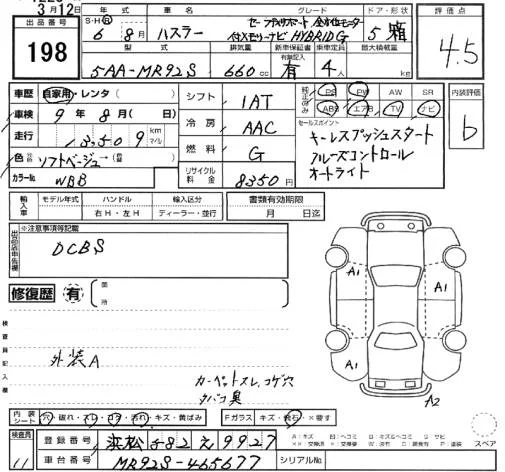 3月12日
出品番号
198
年式
車名
グレード
ドア・形状
評価点
S・H・R
6 8月
ハスラー
セーフティサポート 全方位モニター
付メモリーナビ HYBRID G
5 箱
4.5
型式
排気量
新車保証書
乗車定員
最大積載量
5AA-MR92S
660cc
有無記入
有
4人
kg
車歴
自家用・レンタ( )
シフト
1AT
純正のみ
PS PW AW SR
ABS エアB TV ナビ
内装評価
b
車検
9年8月( 日)
冷房
AAC
セールスポイント
キーレスプッシュスタート
クルーズコントロール
オートライト
走行
13,509
km
マイル
燃料
G
色
ソフトベージュ→
カラーNo.
WBB
リサイクル料金
8350円
輸入車
モデル年式
ハンドル
輸入区分
右H・左H
ディーラー・並行
書類有効期限
月 日迄
出品店申告欄
※注意事項等記載
DCBS
修復歴
有
箇所
検査員記入欄
外装A
カーペットスレ、コゲ穴
タバコ臭
A1
A1
A1
A2
内装シート
穴・破れ・スレ・コゲ・汚れ・キズ・黄ばみ
Fガラス
キズ・飛石・×要す
スペア
検査員
11
登録番号
浜松 582 え 9927
車台番号
MR92S-465677
シリアルNo.